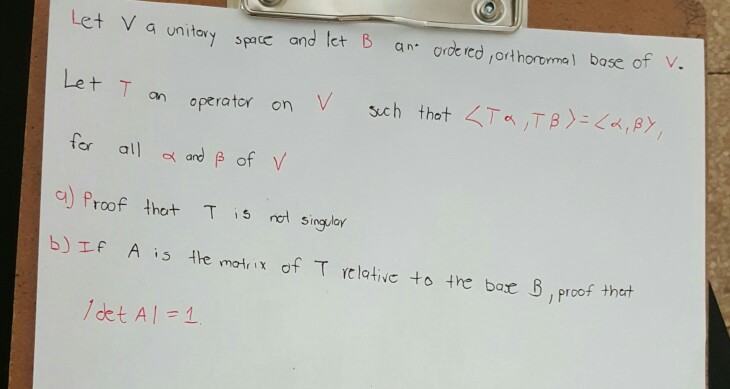 Let V a unitary space and let B an ordered, orthonormal base of V.
Let T an operator on V such that <Tα, Tβ> = <α, β>,
for all α and β of V
a) Proof that T is not singular
b) If A is the matrix of T relative to the base B, proof that
|det A| = 1.